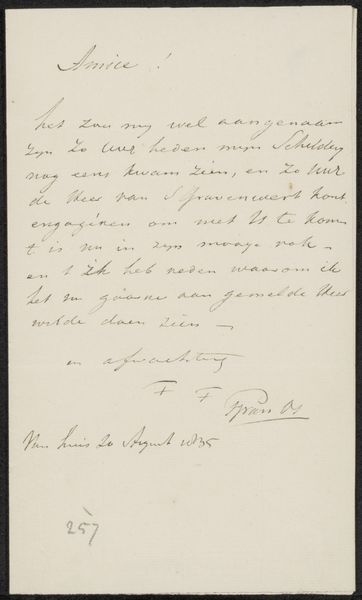 Amice!
het zou my wel aangenaam
zyn zo UwE heden myn Schildery
nog eens kwam zien, en zo UwE
de Heer van S Gravenweert kont
engagéren om met U te kom
t is nu in zyn mooye rok –
en ik heb reden waarom ik
het nu gaarne aan gemelde Heer
wilde doen zien –
in afwachting
F F
Van huis 20 August 1835
257